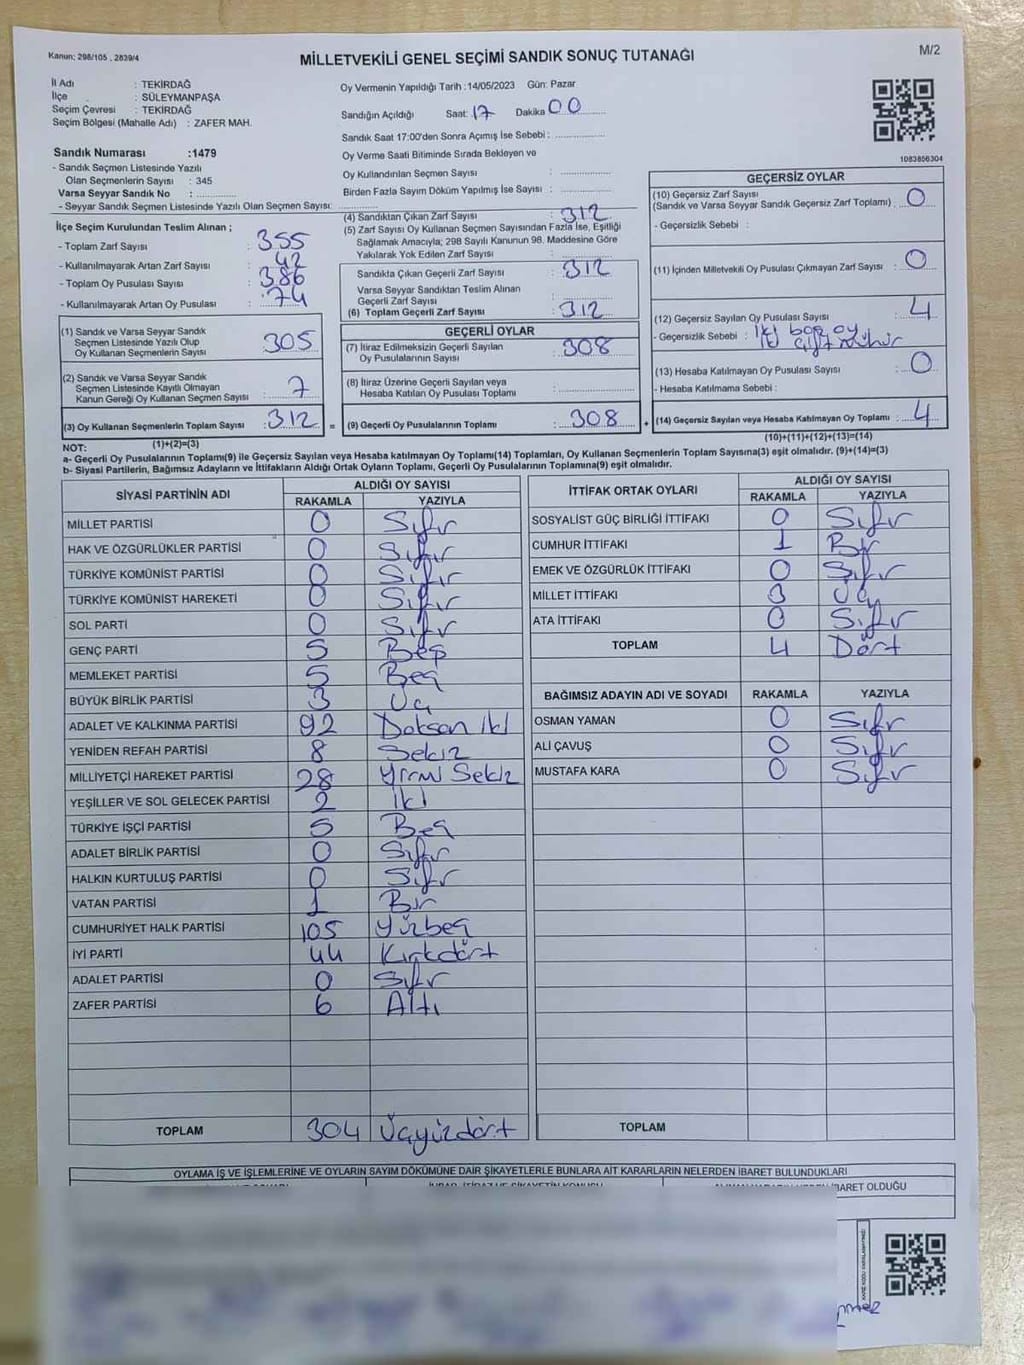 Kanun: 298/105 , 2839/4
MİLLETVEKİLİ GENEL SEÇİMİ SANDIK SONUÇ TUTANAĞI
M/2
İl Adı : TEKİRDAĞ
İlçe : SÜLEYMANPAŞA
Seçim Çevresi : TEKİRDAĞ
Seçim Bölgesi (Mahalle Adı) : ZAFER MAH.
Sandık Numarası :1479
- Sandık Seçmen Listesinde Yazılı
Olan Seçmenlerin Sayısı : 345
Varsa Seyyar Sandık No :
- Seyyar Sandık Seçmen Listesinde Yazılı Olan Seçmen Sayısı:
Oy Vermenin Yapıldığı Tarih :14/05/2023 Gün: Pazar
Sandığın Açıldığı Saat: 17 Dakika 00
Sandık Saat 17:00'den Sonra Açımış İse Sebebi :
Oy Verme Saati Bitiminde Sırada Bekleyen ve
Oy Kullandırılan Seçmen Sayısı :
Birden Fazla Sayım Döküm Yapılmış İse Sayısı :
1083856304
İlçe Seçim Kurulundan Teslim Alınan ;
- Toplam Zarf Sayısı : 355
- Kullanılmayarak Artan Zarf Sayısı : 42
- Toplam Oy Pusulası Sayısı : 386
- Kullanılmayarak Artan Oy Pusulası : 74
(1) Sandık ve Varsa Seyyar Sandık
Seçmen Listesinde Yazılı Olup
Oy Kullanan Seçmenlerin Sayısı : 305
(2) Sandık ve Varsa Seyyar Sandık
Seçmen Listesinde Kayıtlı Olmayan
Kanun Gereği Oy Kullanan Seçmen Sayısı : 7
(3) Oy Kullanan Seçmenlerin Toplam Sayısı : 312
(1)+(2)=(3)
(4) Sandıktan Çıkan Zarf Sayısı : 312
(5) Zarf Sayısı Oy Kullanan Seçmen Sayısından Fazla İse, Eşitliği
Sağlamak Amacıyla; 298 Sayılı Kanunun 98. Maddesine Göre
Yakılarak Yok Edilen Zarf Sayısı :
Sandıkta Çıkan Geçerli Zarf Sayısı : 312
Varsa Seyyar Sandıktan Teslim Alınan
Geçerli Zarf Sayısı :
(6) Toplam Geçerli Zarf Sayısı : 312
GEÇERLİ OYLAR
(7) İtiraz Edilmeksizin Geçerli Sayılan
Oy Pusulalarının Sayısı : 308
(8) İtiraz Üzerine Geçerli Sayılan veya
Hesaba Katılan Oy Pusulası Toplamı :
= (9) Geçerli Oy Pusulalarının Toplamı : 308 +
GEÇERSİZ OYLAR
(10) Geçersiz Zarf Sayısı
(Sandık ve Varsa Seyyar Sandık Geçersiz Zarf Toplamı) : 0
- Geçersizlik Sebebi :
(11) İçinden Milletvekili Oy Pusulası Çıkmayan Zarf Sayısı : 0
(12) Geçersiz Sayılan Oy Pusulası Sayısı : 4
- Geçersizlik Sebebi : İki boş oy
İki çift mühür
(13) Hesaba Katılmayan Oy Pusulası Sayısı : 0
- Hesaba Katılmama Sebebi :
(14) Geçersiz Sayılan veya Hesaba Katılmayan Oy Toplamı : 4
(10)+(11)+(12)+(13)=(14)
NOT:
a- Geçerli Oy Pusulalarının Toplamı(9) ile Geçersiz Sayılan veya Hesaba katılmayan Oy Toplamı(14) Toplamları, Oy Kullanan Seçmenlerin Toplam Sayısına(3) eşit olmalıdır. (9)+(14)=(3)
b- Siyasi Partilerin, Bağımsız Adayların ve İttifakların Aldığı Ortak Oyların Toplamı, Geçerli Oy Pusulalarının Toplamına(9) eşit olmalıdır.
SİYASİ PARTİNİN ADI ALDIĞI OY SAYISI
RAKAMLA YAZIYLA
MİLLET PARTİSİ 0 Sıfır
HAK VE ÖZGÜRLÜKLER PARTİSİ 0 Sıfır
TÜRKİYE KOMÜNİST PARTİSİ 0 Sıfır
TÜRKİYE KOMÜNİST HAREKETİ 0 Sıfır
SOL PARTİ 0 Sıfır
GENÇ PARTİ 5 Beş
MEMLEKET PARTİSİ 5 Beş
BÜYÜK BİRLİK PARTİSİ 3 Üç
ADALET VE KALKINMA PARTİSİ 92 Doksan iki
YENİDEN REFAH PARTİSİ 8 Sekiz
MİLLİYETÇİ HAREKET PARTİSİ 28 Yirmi Sekiz
YEŞİLLER VE SOL GELECEK PARTİSİ 2 İki
TÜRKİYE İŞÇİ PARTİSİ 5 Beş
ADALET BİRLİK PARTİSİ 0 Sıfır
HALKIN KURTULUŞ PARTİSİ 0 Sıfır
VATAN PARTİSİ 1 Bir
CUMHURİYET HALK PARTİSİ 105 Yüzbeş
İYİ PARTİ 44 Kırkdört
ADALET PARTİSİ 0 Sıfır
ZAFER PARTİSİ 6 Altı
TOPLAM 304 Üçyüzdört
İTTİFAK ORTAK OYLARI ALDIĞI OY SAYISI
RAKAMLA YAZIYLA
SOSYALİST GÜÇ BİRLİĞİ İTTİFAKI 0 Sıfır
CUMHUR İTTİFAKI 1 Bir
EMEK VE ÖZGÜRLÜK İTTİFAKI 0 Sıfır
MİLLET İTTİFAKI 3 Üç
ATA İTTİFAKI 0 Sıfır
TOPLAM 4 Dört
BAĞIMSIZ ADAYIN ADI VE SOYADI RAKAMLA YAZIYLA
OSMAN YAMAN 0 Sıfır
ALİ ÇAVUŞ 0 Sıfır
MUSTAFA KARA 0 Sıfır
TOPLAM
OYLAMA İŞ VE İŞLEMLERİNE VE OYLARIN SAYIM DÖKÜMÜNE DAİR ŞİKAYETLERLE BUNLARA AİT KARARLARIN NELERDEN İBARET BULUNDUKLARI
OLDUĞU